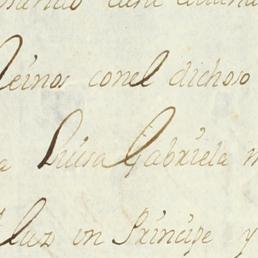 Reinos conel dichoso
a Luisa Gabriela
luz un Principe y